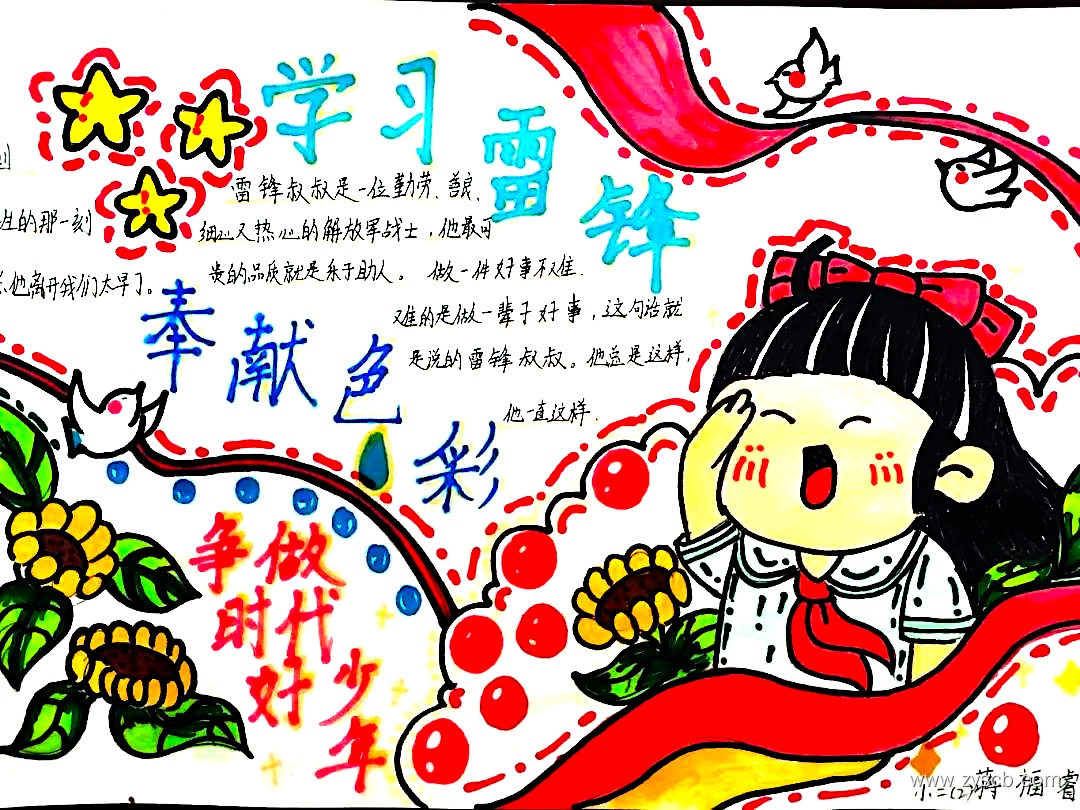 学习雷锋
雷锋叔叔是一位勤劳、善良、
细心又热心的解放军战士，他最可
贵的品质就是乐于助人。做一件好事不难.
难的是做一辈子好事，这句话就
是说的雷锋叔叔。他总是这样,
他一直这样.
刻
生的那一刻
他离开我们太早了。
奉献色彩
争做
时代
好少
年
小二(2)蒋福睿
www.zyscb.com